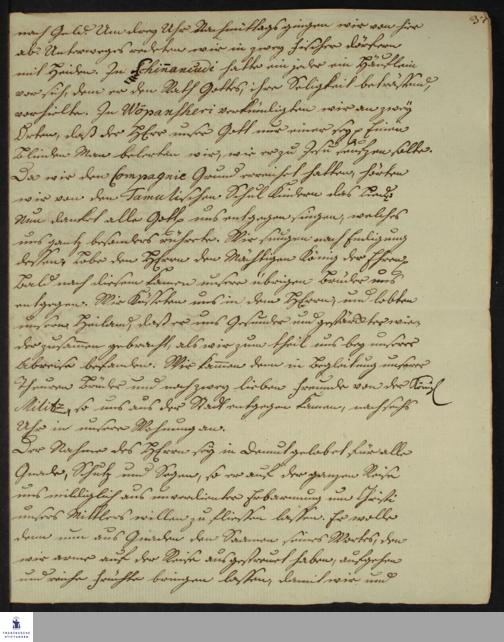 37
nach Geld. Um drey Uhr Nachmittags gingen wir von hier
ab. Unterwegs redeten wir in zwey Fischer Dörfern
mit Heiden. In Tschinnancudi hatte ein jeder ein Häuflein
vor sich, dem er den Rath Gottes, ihre Seligkeit betreffend,
vorhielte. In Wöpanscheri verkündigten wir an zwey
Orten, daß der HErr unser Gott nur einer sey. Einen
Blinden Man belerten wir, wie er zu Jesu seufzen solte.
Da wir den Compagnie Grund erreichet hatten, hörten
wir von den Tamulischen Schul Kindern das Lied:
Nun danket alle Gott uns entgegen singen, welches
uns gantz besonders rührete. Wir sungen nach Endigung
dessen: Lobe den HErren den Mächtigen König der Ehren.
Bald nach diesem kamen unsere übrigen Brüder uns
entgegen. Wir küsseten uns in dem HErrn, und lobten
unsern Heiland, daß er uns gesunder und gestärckter wie-
der zusammen gebracht, als wir zum theil uns bey unserer
Abreise befanden. Wir kamen denn in Begleitung unserer
Theuren Brüder und noch zwey lieben Freunde von der
Militz, so uns aus der Stadt entgegen kamen, nach sechs
Uhr in unsere Wohnung an.
Der Nahme des HErrn sey in Demut gelobet für alle
Gnade, Schutz und Segen, so er auf der gantzen Reise
uns williglich aus unverdienter Erbarmung um Christi
unsers Mittlers willen zufliessen lassen. Er wolle
denn nun aus Gnaden den Saamen seines Wortes, den
wir arme auf der Reise ausgestreuet haben, aufgehen
und reiche Früchte bringen lassen, damit wir und
FRANCKESCHE
STIFTUNGEN